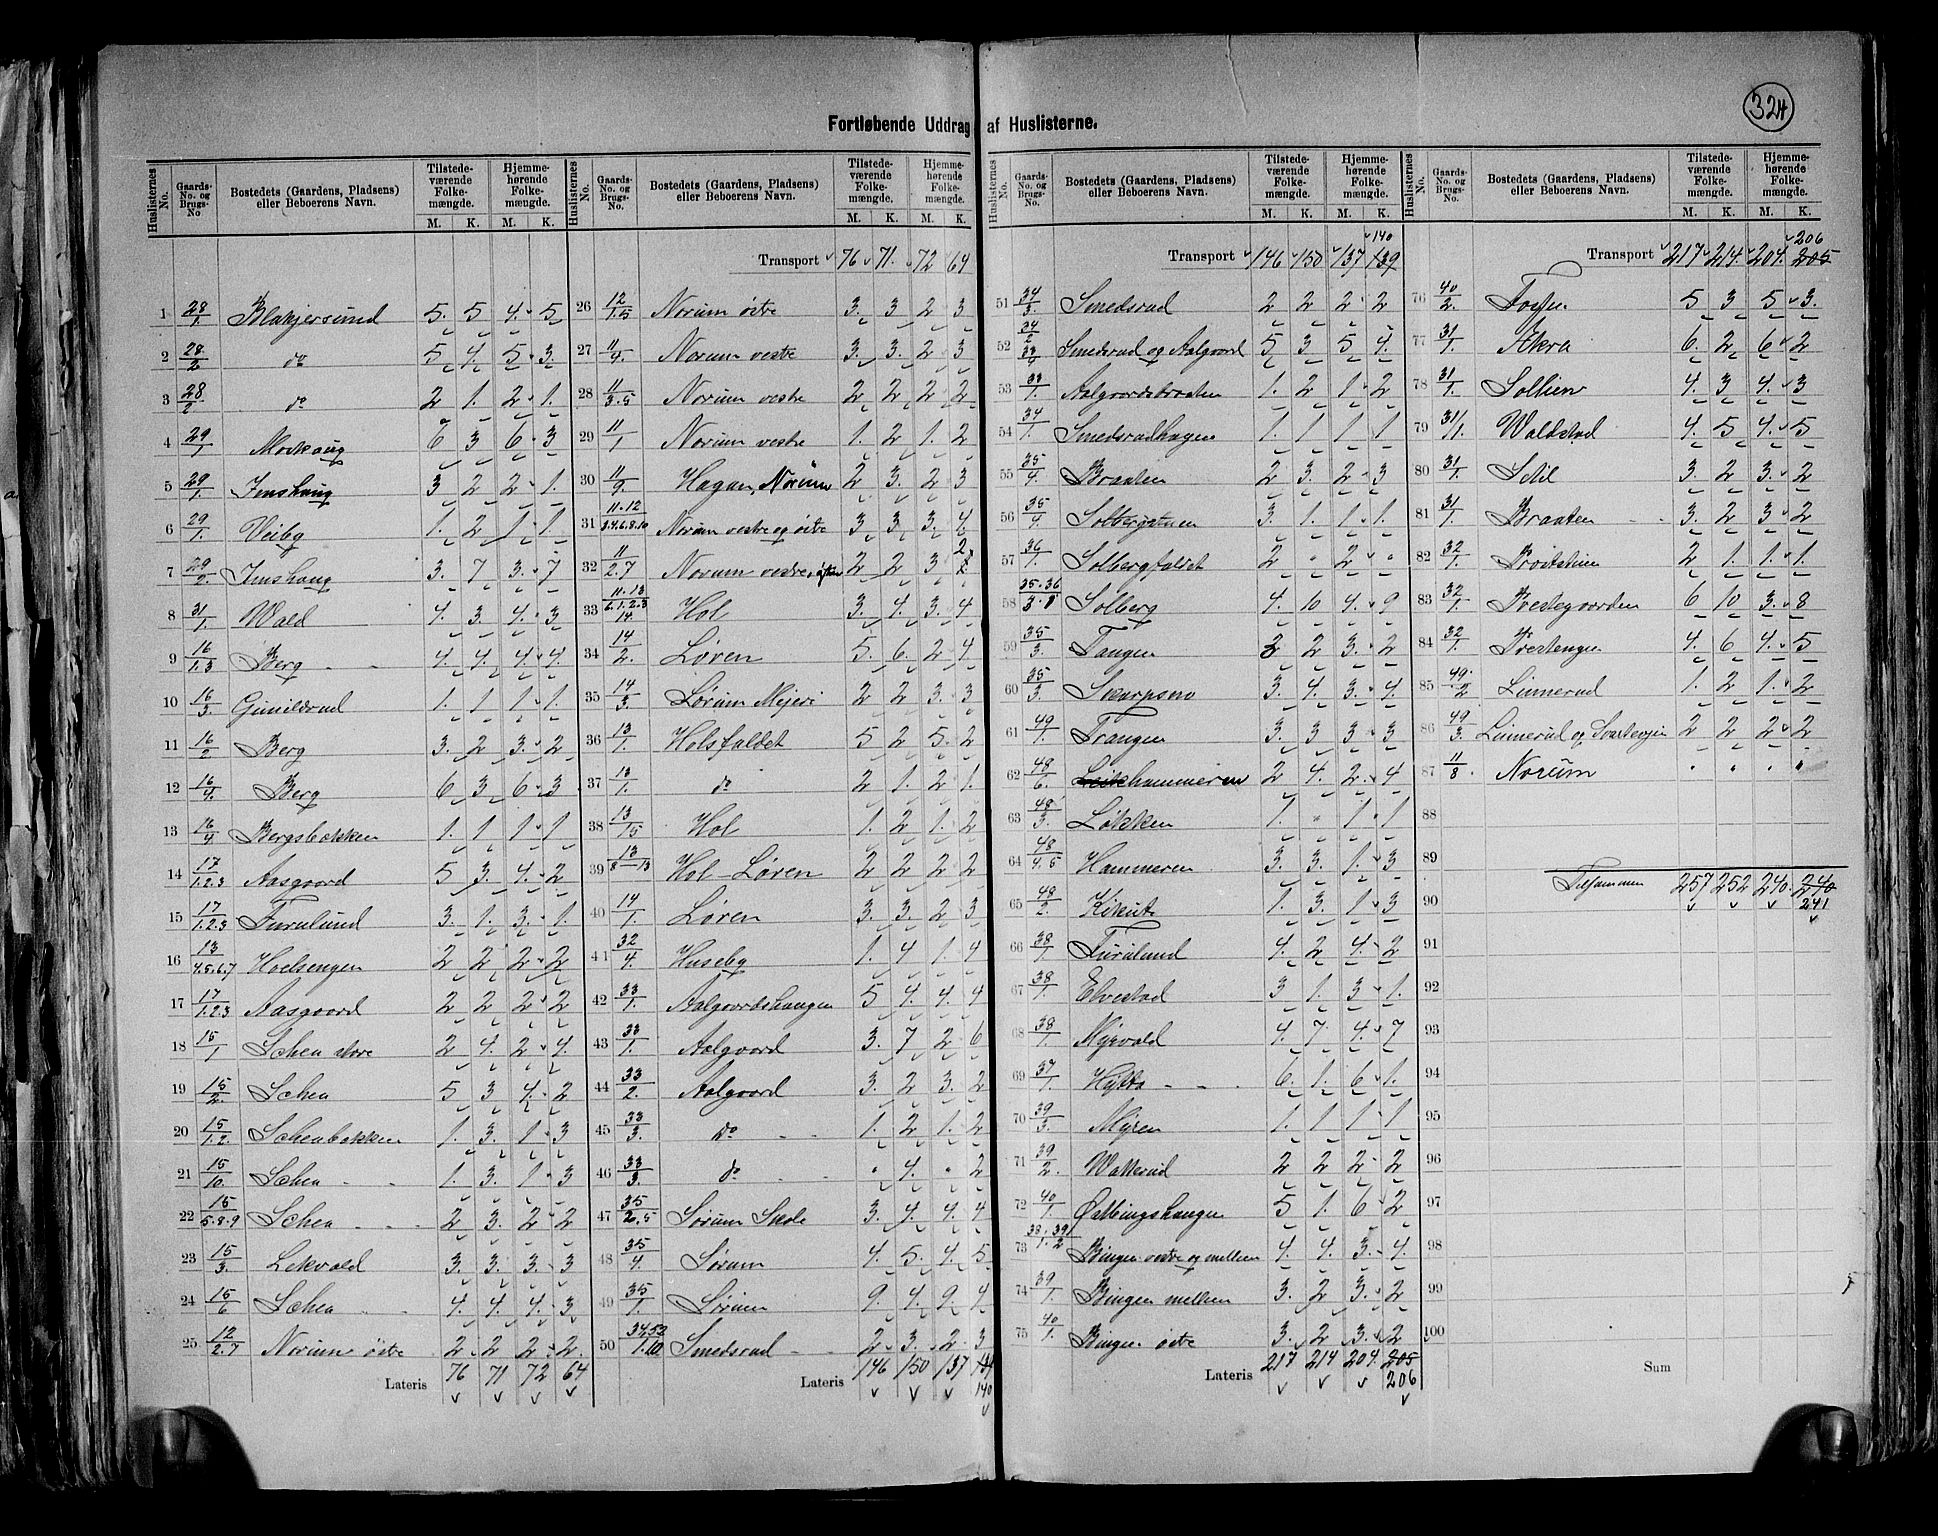 324
Fortløbende Uddrag af Huslisterne.
Huslisternes No. Gaards-No. og Brugs-No Bostedets (Gaardens, Pladsens) eller Beboerens Navn. Tilstedeværende Folkemængde. M. K. Hjemmehørende Folkemængde. M. K.
1 28/1 Blakjersund 5. 5 4. 5
2 28/2 do 5. 4. 5 3.
3 28/2 do 2 1. 2 1.
4 29/1 Moskaug 6 3 6 3
5 29/1. Imshaug 3 2 2 1.
6 29/1 Veiby 1. 2 1 1.
7 29/2 Imshaug 3. 7 3. 7
8 31/1 Wald 4. 3. 4. 3
9 16/1.3 Berg 4. 4. 4. 4.
10 16/3 Gunildrud 1. 1 1. 1.
11 16/2 Berg 3. 2 3. 2
12 16/4 Berg 6 3 6 3
13 16/4 Bergsbækken 1. 1 1 1
14 17/1.2.3 Aasgaard 5 3. 4. 2
15 17/1.2.3 Furulund 3. 1. 3. 1.
16 13/4.5.6.7 Hoelsengen 2 2 2 2
17 17/1.2.3 Aasgaard 2 2 2 2
18 15/1 Schea store 2 4. 2 4.
19 15/2 Schea 5 3 4. 2
20 15/1.2. Scheabækken 1. 3. 1 3
21 15/10 Schea 1. 3. 1 3
22 15/5.8.9 Schea 2 3. 2 2
23 15/3. Lekvold 3. 3. 3. 3
24 15/6 Schea 4. 4. 4. 3
25 12/2.7 Norum östre 2 2 2 2.
Lateris 76 71 72 64
Huslisternes No. Gaards-No. og Brugs-No. Bostedets (Gaardens, Pladsens) eller Beboerens Navn. Tilstedeværende Folkemængde. M. K. Hjemmehørende Folkemængde. M. K.
Transport 76 71. 72 64
26 12/1.5 Norum östre 3. 3 2 3
27 11/4. Norum vestre 3. 3. 2 3
28 11/3.5 Norum vestre 2 2 2 2
29 11/1 Norum vestre 1. 2 1. 2
30 11/9. Hagan, Norum 2 3. 2 3
31 11.12/3.4.6.8.10 Norum vestre og östre 3 3 3. 4.
32 11/2.7 Norum vestre, 2 2 3 2
33 11.13/6.1.2.3 14. Hol 3. 4. 3. 4
34 14/2. Løren 5. 6. 2 4.
35 14/3. Lørum Mejeri 2 2 3. 3
36 13/1. Holsfaldet 5 2 5. 2
37 13/1. do 2 1. 2 1.
38 13/15 Hol 1. 2 1. 2
39 13/8-13 Hol-Løren 2 2 2 2
40 14/1 Løren 3. 3. 2 3
41 32/4. Huseby 1. 4 1. 4
42 33/1. Aalgaardshaugen 5 4. 4. 4
43 33/1. Aalgaard 3. 7 2 6
44 33/2. Aalgaard 3. 2 3. 2
45 33/3. do 1. 2 1. 2
46 33/3. do " 4. " 2
47 35/2.5 Sørum Skole 3. 4. 4. 4
48 35/4. Sørum 4. 5 4. 5
49 35/1. Sørum 9. 4. 9. 4
50 34.52/1.10 Smedsrud 2 3. 2 3
Lateris 146 150 137 139 140
Huslisternes No. Gaards-No. og Brugs-No. Bostedets (Gaardens, Pladsens) eller Beboerens Navn. Tilstedeværende Folkemængde. M. K. Hjemmehørende Folkemængde. M. K.
140
Transport 146 150 137 139
51 34/3. Smedsrud 2 2 2 2
52 34/2 33/4 Smedsrud og Aalgaard 5 3. 5 4.
53 33/1. Aalgaardsbraaten 1. 2 1 2
54 34/1. Smedsrudhagen 1. 1 1 1
55 35/4. Braaten 2 3. 2 3
56 35/4. Solbergstuen 3. 1. 1. 1.
57 36/1. Solbergfaldet 2 " 2 "
58 35.36/3.1 Solberg 4. 10 4. 9
59 35/3. Tangen 3 2 3. 2
60 35/3 Skarpsno 3. 4. 3. 4.
61 49/1. Trangen 3. 3 3 3
62 48/6. hammeren 2 4. 2 4
63 48/3. Løkken 1. " 1 1
64 48/4.5 Hammeren 3. 3. 1. 3
65 48/2. Kikut 1. 3. 1 3
66 38/1 Furulund 4. 2 4. 2
67 38/1. Elvestad 3 1. 3 1.
68 38/1 Myrvold 4. 7 4. 7
69 37/1. Hytta 6. 1. 6 1.
70 39/3. Myren 1. 1 1 1.
71 39/2. Wakkerud 2 2 2 2
72 40/1. Østbingshaugen 5 1. 6 2
73 38.39/1.2 Bingen vestre og mellem 4. 4. 3. 4.
74 39/1 Bingen mellem 3. 2 3. 2
75 40/1. Bingen östre 3. 2 3. 2
Lateris 217 214 204. 205 206
Huslisternes No. Gaards-No. og Brugs-No. Bostedets (Gaardens, Pladsens) eller Beboerens Navn. Tilstedeværende Folkemængde. M. K. Hjemmehørende Folkemængde. M. K.
206
Transport 217 214. 204. 205
76 40/2. Fossen 5 3 5 3.
77 31/1. Akra 6. 2 6 2
78 31/1. Sollien 4. 3 4. 3
79 31/1. Waldstad 4. 5 4. 5
80 31/1. Stil 3. 2 3. 2
81 31/1. Braaten 3. 2 3 2
82 32/1. 2 1. 1. 1.
83 32/1. Prestegaarden 6 10 3. 8
84 32/1. Prestengen 4. 6 4. 5
85 49./2 Linnerud 1. 2 1. 2
86 49/3. Linnerud og Svartengen 2 2 2 2
87 11/8. Norum " " " "
88
89
Tilsammen 257 252 240. 240
241
90
91
92
93
94
95
96
97
98
99
100
Sum